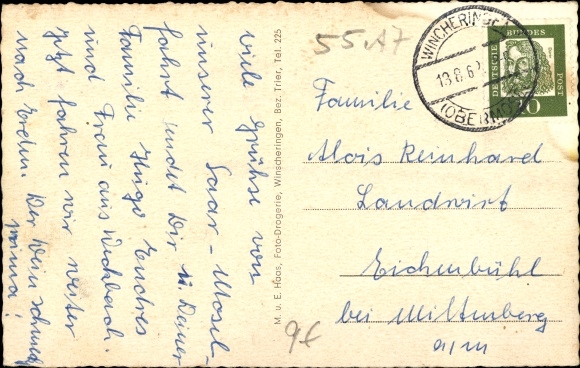 viele Grüße von
unserer Saar-Mosel-
fahrt sendet Dir u. Deiner
Familie Hugo Endres
und Frau aus
Jetzt fahren wir weiter
nach Der Wein schmeckt
prima!
M. u. E. Haas, Foto-Drogerie, Winscheringen, Bez. Trier, Tel. 225
55 A7
9€
WINCHERINGEN
13.8.62
(OBERMOSEL)
DEUTSCHE BUNDESPOST
10
Familie
Alois Reinhard
Landwirt
Eichenbühl
bei Miltenberg
a/m